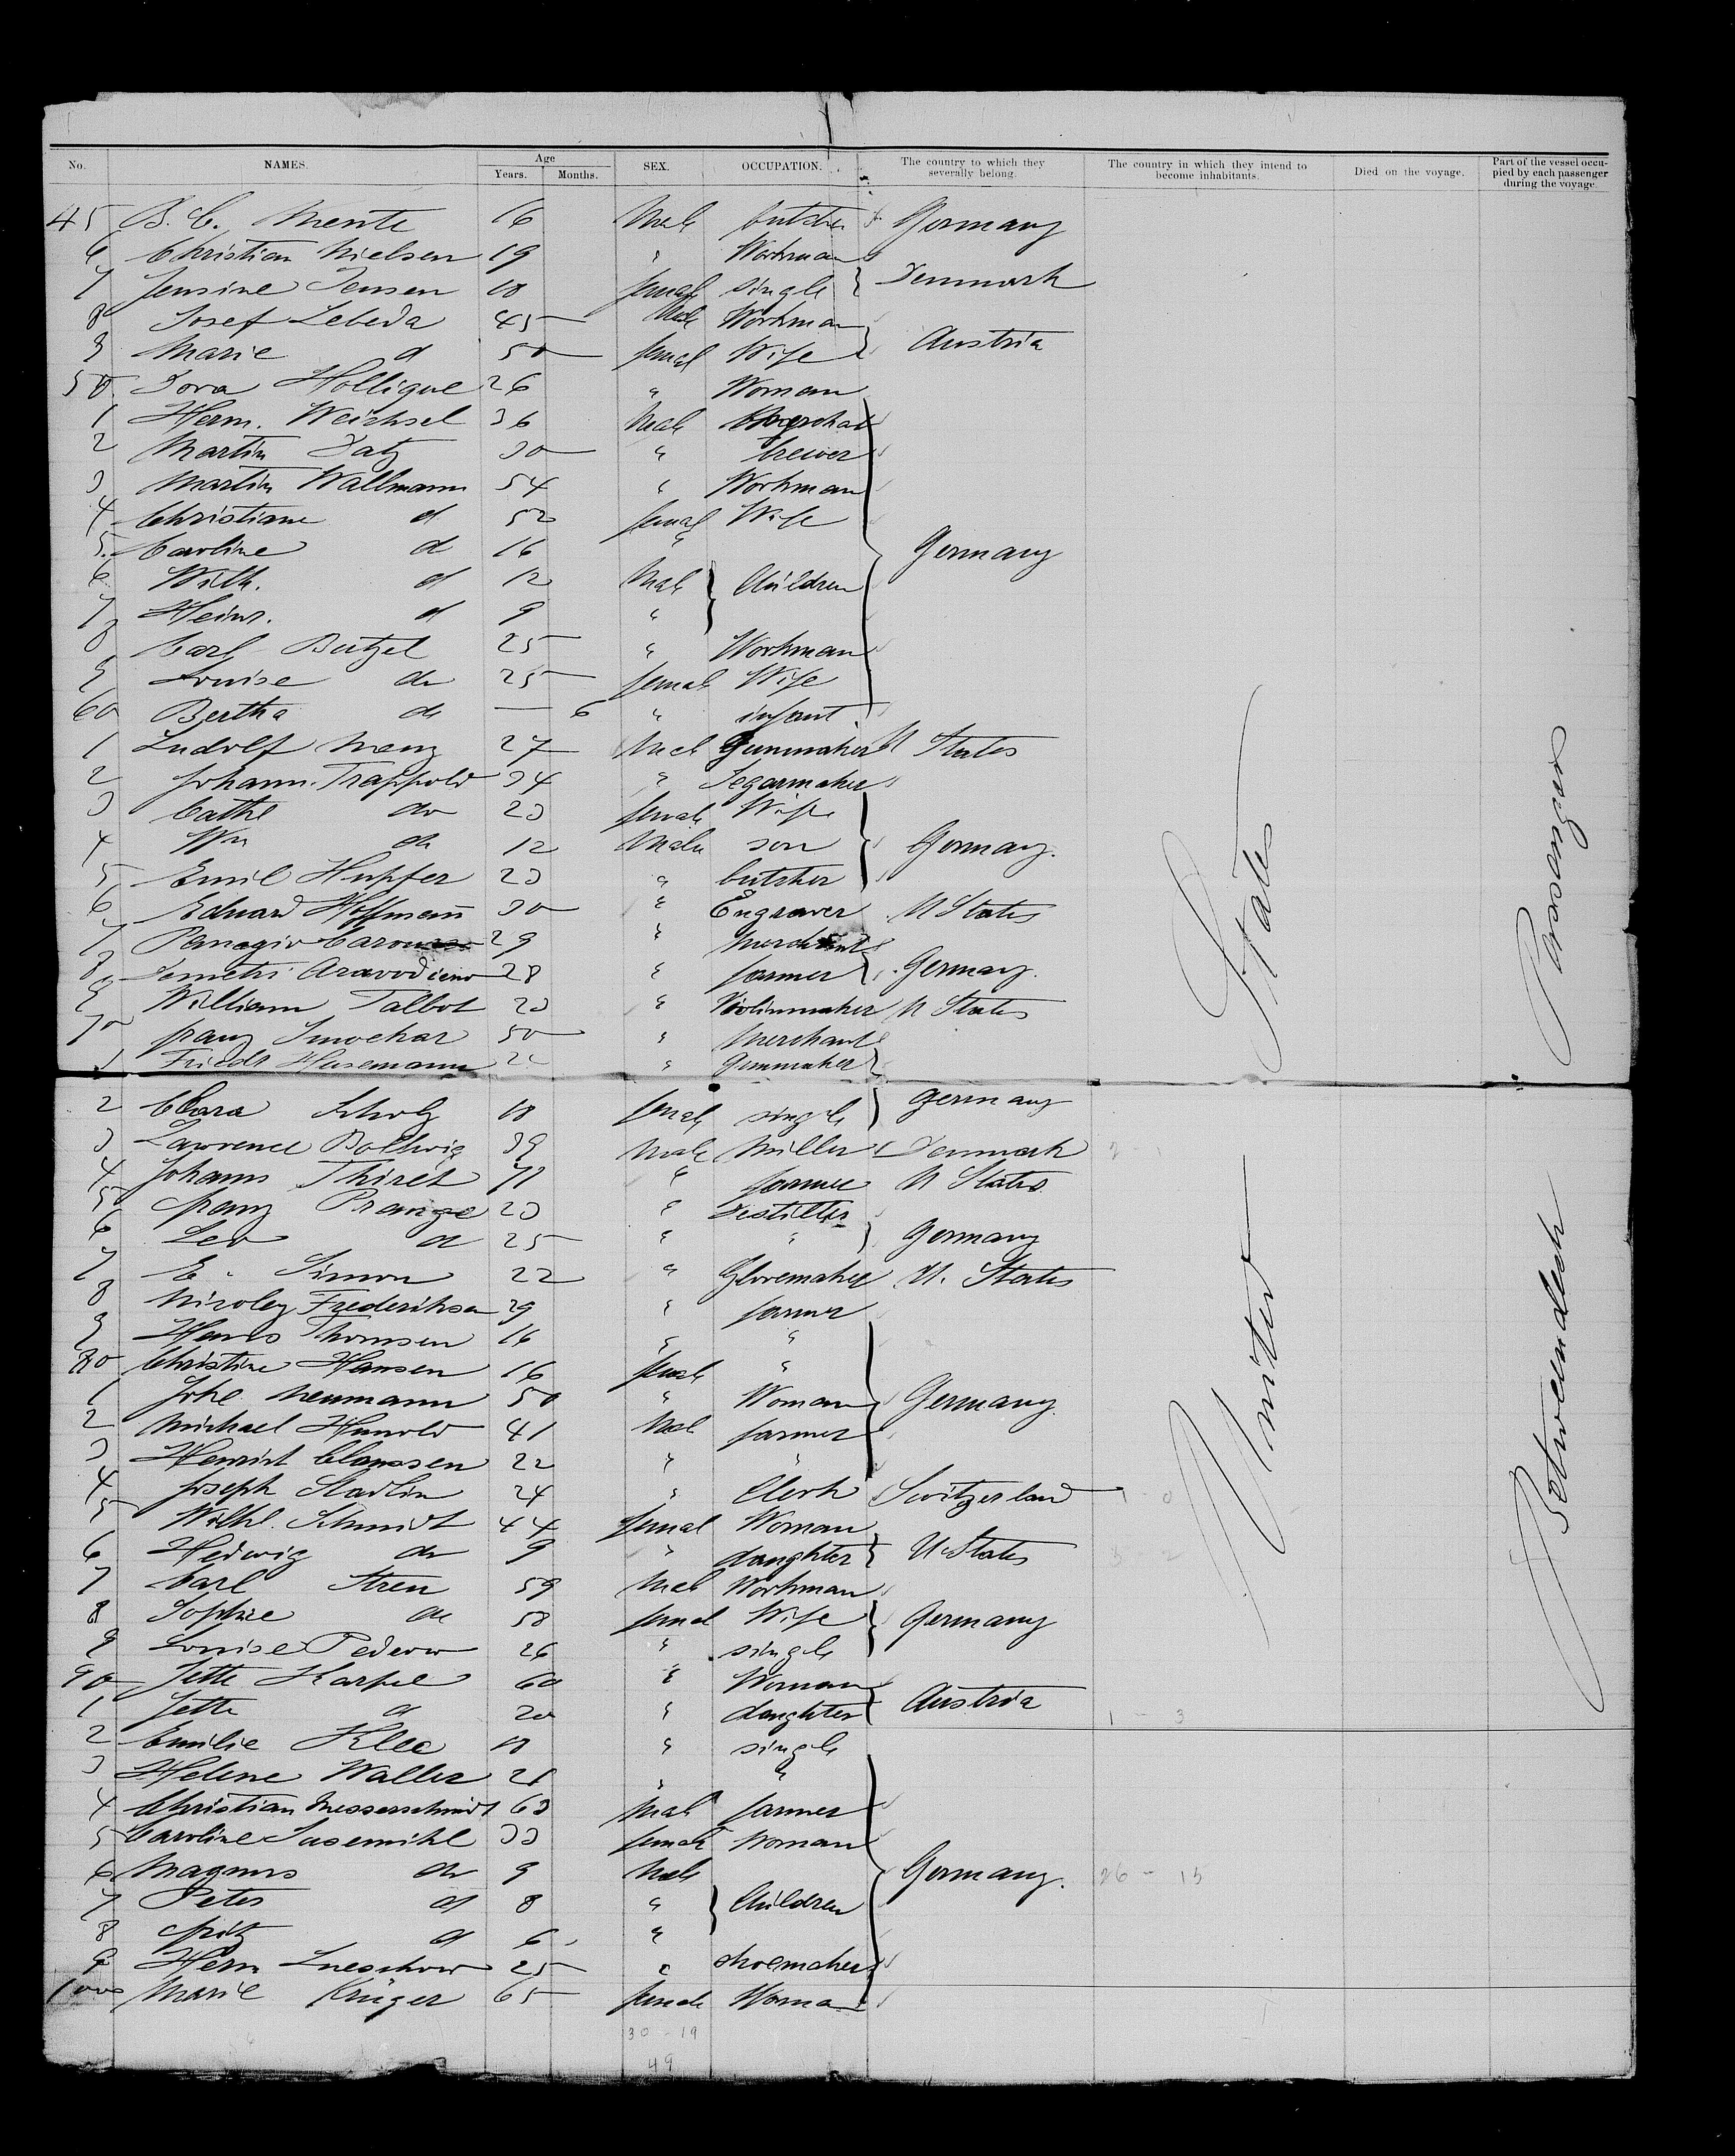 No. NAMES. Age Years. Months. SEX. OCCUPATION. The country to which they severally belong. The country in which they intend to become inhabitants. Died on the voyage. Part of the vessel occupied by each passenger during the voyage.
45 B. C. Mente 16 Male butcher Germany
6 Christian Nielsen 19 " Workman
7 Jensine Jensen 18 female single Denmark
8 Josef Lebeda 45 Male Workman
9 Marie d 50 femal Wife Austria
50 Dora Hollique 26 " Woman
1 Herm. Weichsel 36 Male
2 Martin Datz 30 " brewer
3 Martin Wallmann 54 " Workman
4 Christiane d 52 femal Wife
5. Caroline d 16 " Germany
6 Wilh. d 12 Male Children
7 Heinr. d 9 "
8 Carl Butzel 25 " Workman
9 Louise do 25 femal Wife
60 Bertha do — 6 " infant
1 Ludolf Meng 27 Male Gunmaker U States
2 Johann Trappold 34 " Segarmaker
3 Cathe do 23 female Wife
4 Wm do 12 Male son Germany.
5 Emil Hupfer 23 " butcher
6 Eduard Hoffmann 30 " Engraver U States
7 Panagio 29 " Merchant
8 Demetri 28 " farmer Germany.
9 William Talbot 23 " Violinmaker U States
70 franz Smockar 50 " Merchant
1 Friedr Husemann " Gunmaker
2 Clara Scholz 18 femal single Germany
3 Lawrence Bollwig 39 Male Miller Denmark
4 Johann Thiret 71 " farmer U States
5 franz Prange 23 " Destiller
6 Leo d 25 " " Germany
7 E. Simon 22 " Glovemaker U. States
8 Nicoley Frederiksen 29 " farmer
9 Hans Thomsen 16 " "
80 Christine Hansen 16 femal "
1 Johe Neumann 50 " Woman Germany
2 Michael Hunold 41 Mal farmer
3 Henrich Claussen 22 " "
4 Joseph Stadlin 24 " Clerk Switzerland
5 Wilhl. Schmidt 44 femal Woman
6 Hedwig do 9 " daughter U States
7 Carl Stren 59 Male Workman
8 Sophie do 58 femal Wife Germany
9 Louise Pederow 26 " single
90 Jette Karpel 60 " Woman
1 Jette d 20 " daughter Austria 1 - 3
2 Emilie Klee 18 " single
3 Helene Waller 21 " "
4 Christian Messerschmidt 63 Male farmer
5 Caroline Susemihl 33 female Woman
6 Magnus do 9 Male Germany. 26 - 15
7 Peter d 8 " Children
8 fritz d 6 "
9 Herm Lueschow 25 " shoemaker
1000 Marie Krüger 65 female Woman
30 - 19
49
United States
Betweendeck Passenger